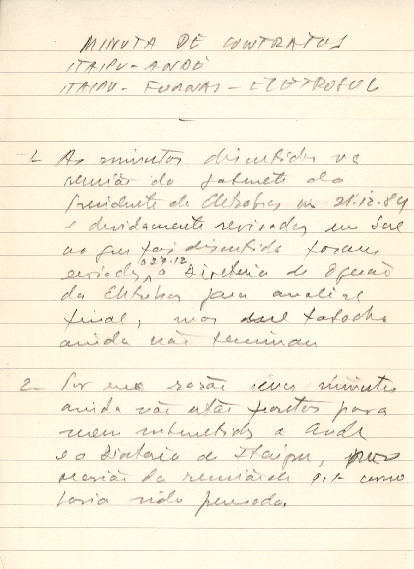 MINUTA DE CONTRATOS
ITAIPU-ANDE
ITAIPU-FURNAS-ELETROSUL
1. As minutas discutidas na
reunião do gabinete do
Presidente da Eletrobras em 21.12.84
e devidamente revisadas em face
ao que foi discutido foram
enviadas a Diretoria de
da Eletrobras para analise
final, mas
ainda não
2- Por essa razão essas minutas
ainda não estão prontas para
serem submetidas a Ande
e a Diretoria de Itaipu,
da reunião de como
havia sido pensado.